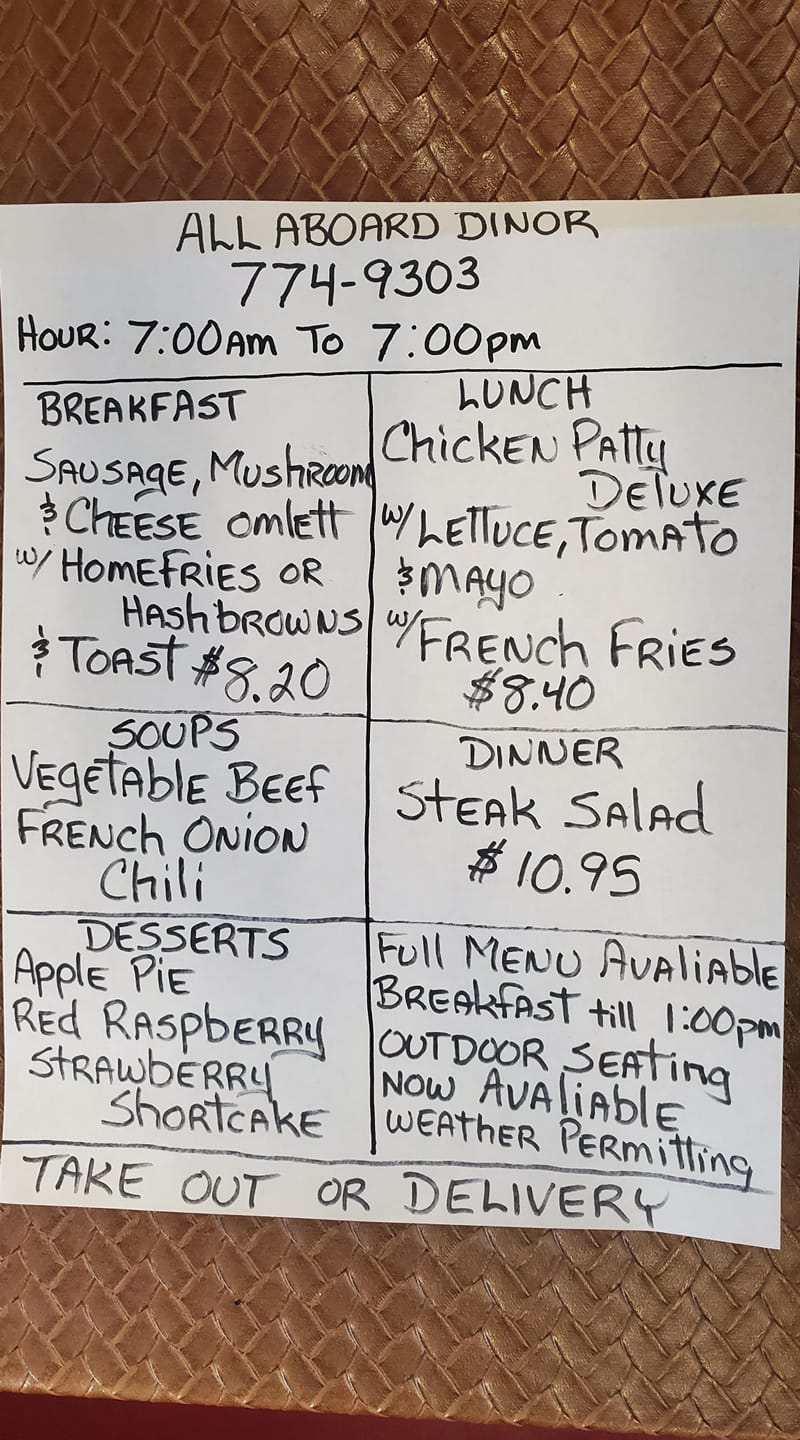 ALL ABOARD DINOR
774-9303
HOUR: 7:00AM TO 7:00PM
BREAKFAST
SAUSAGE, MUSHROOM
& CHEESE OMLETT
W/ HOMEFRIES OR
HASHBROWNS
& TOAST $8.20
LUNCH
CHICKEN PATTY
DELUXE
W/ LETTUCE, TOMATO
& MAYO
W/ FRENCH FRIES
$8.40
SOUPS
VEGETABLE BEEF
FRENCH ONION
CHILI
DINNER
STEAK SALAD
$10.95
DESSERTS
APPLE PIE
RED RASPBERRY
STRAWBERRY
SHORTCAKE
FULL MENU AVALIABLE
BREAKFAST till 1:00pm
OUTDOOR SEATING
NOW AVALIABLE
WEATHER PERMITTING
TAKE OUT OR DELIVERY